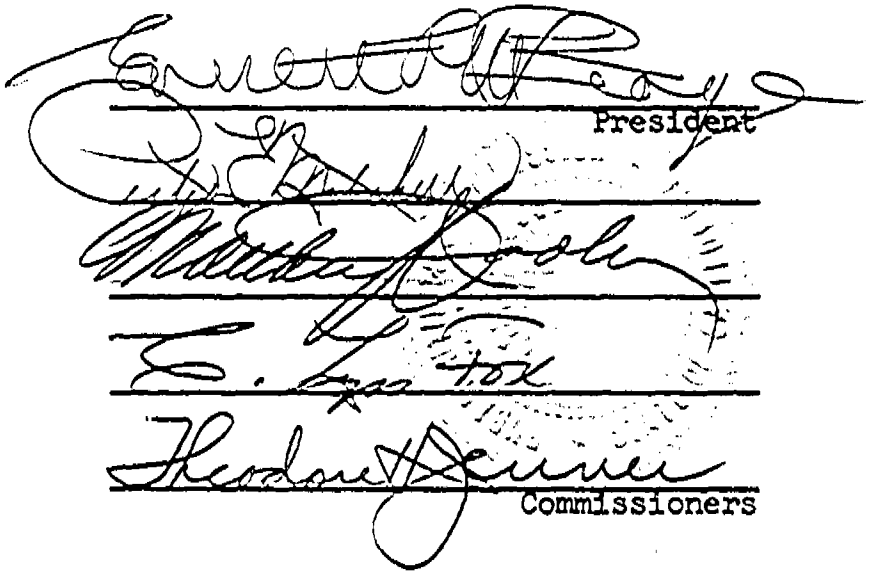 Everett C. McKeage
President
Peter E. Mitchell
Matthew J. Dooley
C. Lyn Fox
Theodore H Jenner
Commissioners